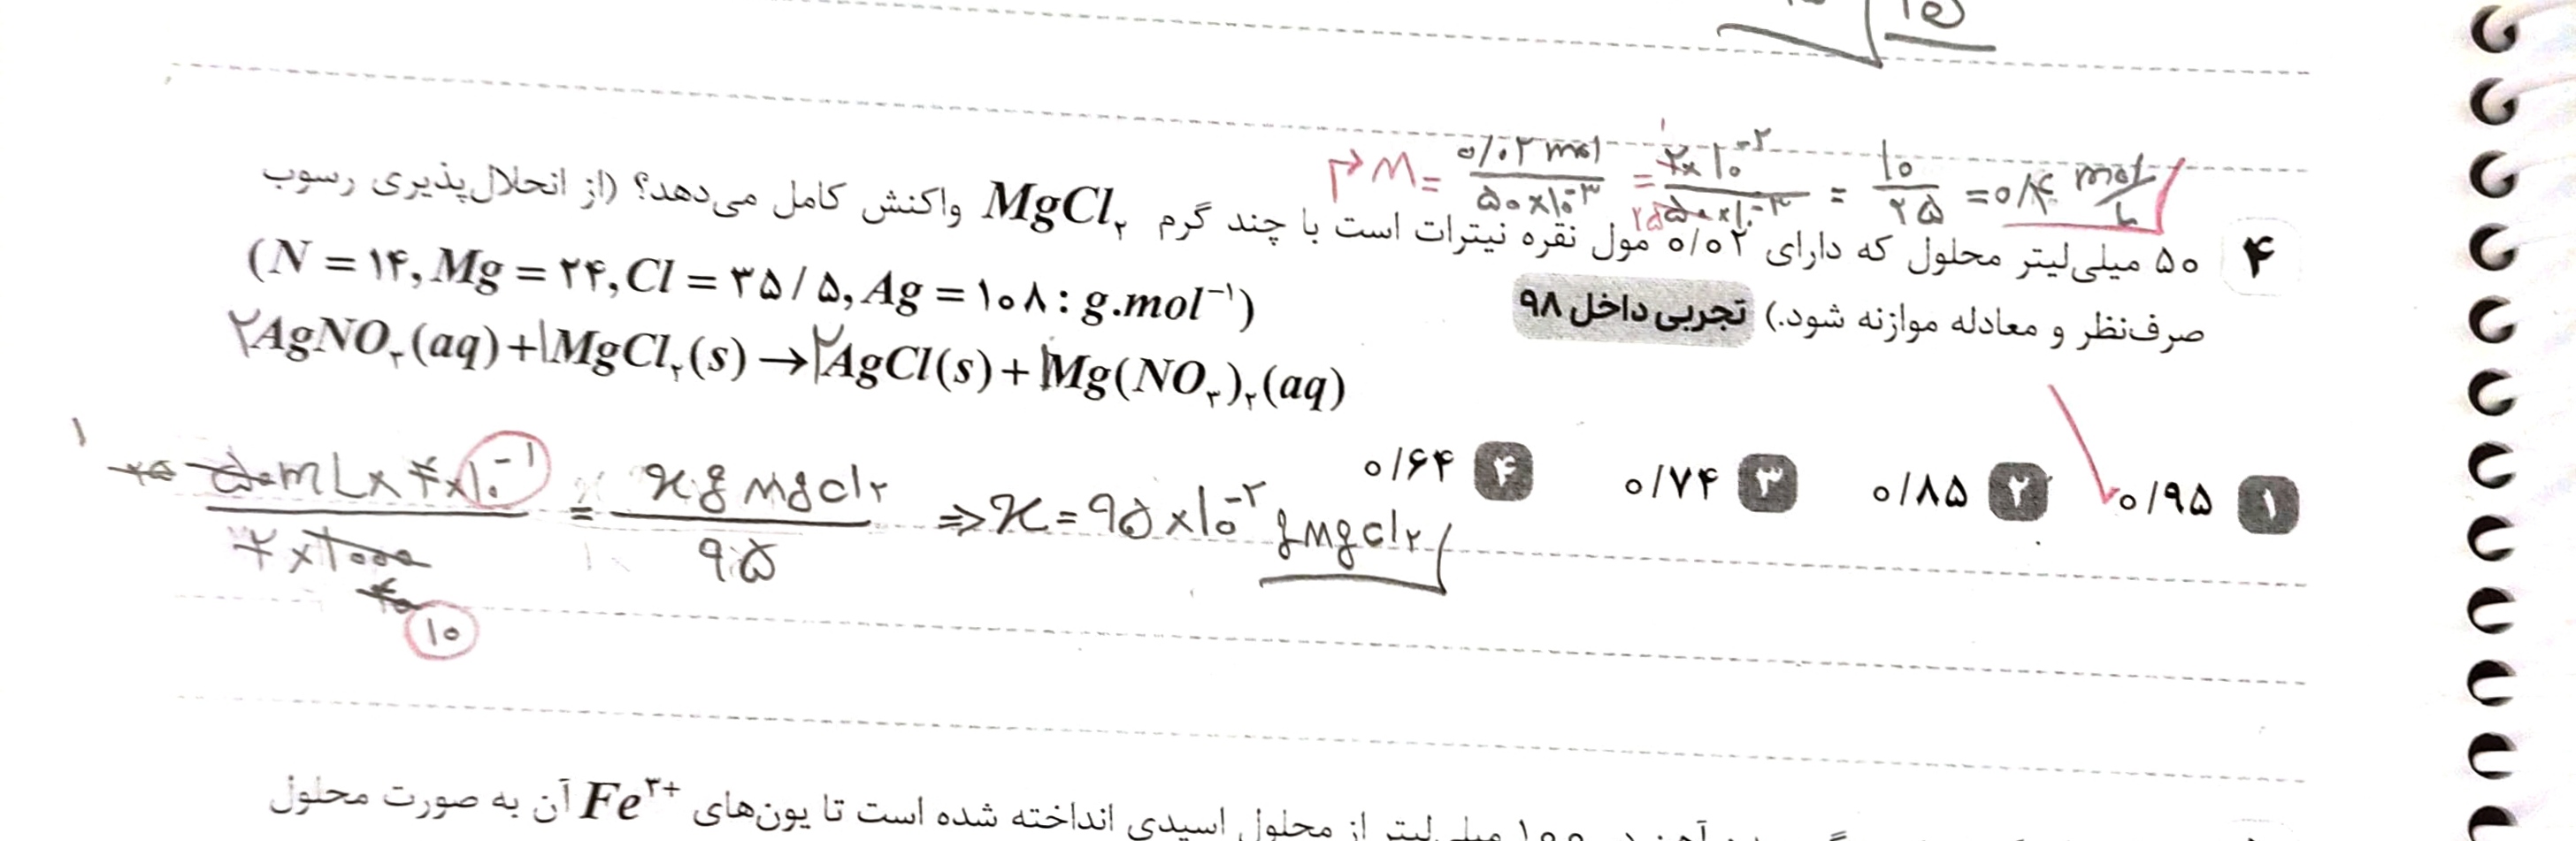 ۱۵
→ M = ۰/۰۲ mol / ۵۰×۱۰⁻³ = ۲×۱۰⁻² / ۵۰×۱۰⁻³ = ۱۰ / ۲۵ = ۰/۴ mol / L
۲۵
۴ ۵۰ میلی‌لیتر محلول که دارای ۰/۰۲ مول نقره نیترات است با چند گرم MgCl۲ واکنش کامل می‌دهد؟ (از انحلال‌پذیری رسوب
صرف‌نظر و معادله موازنه شود.) تجربی داخل ۹۸ (N = ۱۴, Mg = ۲۴, Cl = ۳۵/۵, Ag = ۱۰۸ : g.mol⁻¹)
۲AgNO۳(aq) + ۱MgCl۲(s) → ۲AgCl(s) + ۱Mg(NO۳)۲(aq)
۱ ۰/۹۵ ۲ ۰/۸۵ ۳ ۰/۷۴ ۴ ۰/۶۴
۱
۵۰ mL × ۴×۱۰⁻¹ / ۲×۱۰۰۰ = x g MgCl۲ / ۹۵ ⇒ x = ۹۵×۱۰⁻² g MgCl۲
۱۰
۱۰۰ میلی‌لیتر از محلول اسیدی انداخته شده است تا یون‌های Fe۳+ آن به صورت محلول